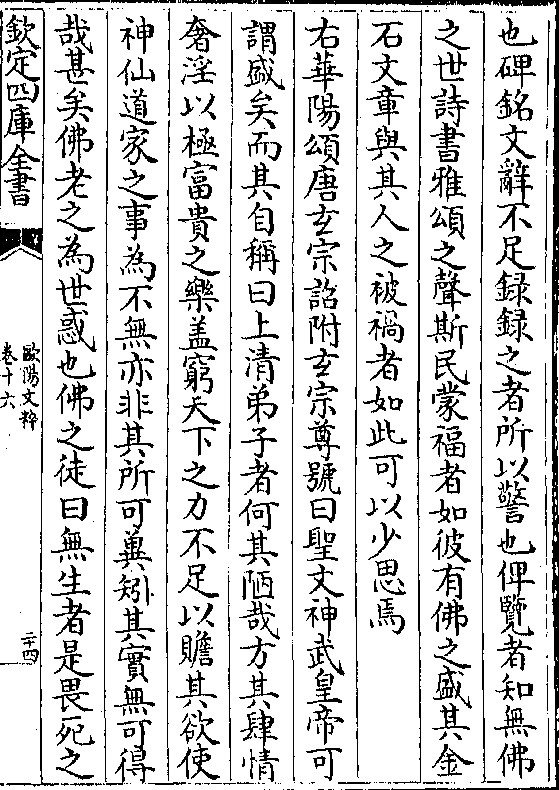 也碑銘文辭不足録録之者所以警也俾覽者知無佛
之世詩書雅頌之聲斯民蒙福者如彼有佛之盛其金
石文章與其人之被禍者如此可以少思焉
右華陽頌唐玄宗詔附玄宗尊號曰聖文神武皇帝可
謂盛矣而其自稱曰上清弟子者何其陋哉方其肆情
奢淫以極富貴之樂盖窮天下之力不足以贍其欲使
神仙道家之事為不無亦非其所可兾矧其實無可得
哉甚矣佛老之為世惑也佛之徒曰無生者是畏死之
欽定四庫全書
歐陽文粹
卷十六
二十四